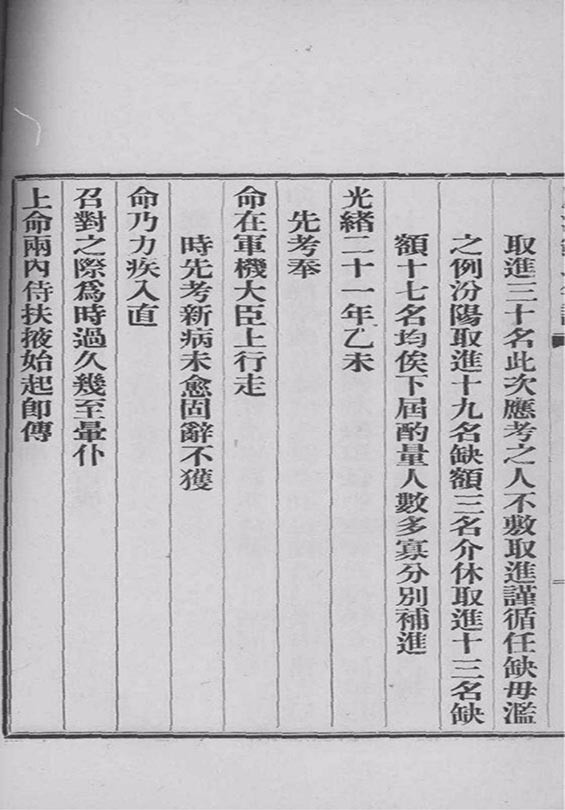 取進三十名此次應考之人不敷取進謹循任缺毋濫
之例汾陽取進十九名缺額三名介休取進十三名缺
額十七名均俟下屆酌量人數多寡分別補進
光緒二十一年乙未
先考奉
命在軍機大臣上行走
時先考新病未愈固辭不獲
命乃力疾入直
召對之際爲時過久幾至暈仆
上命兩內侍扶掖始起卽傳